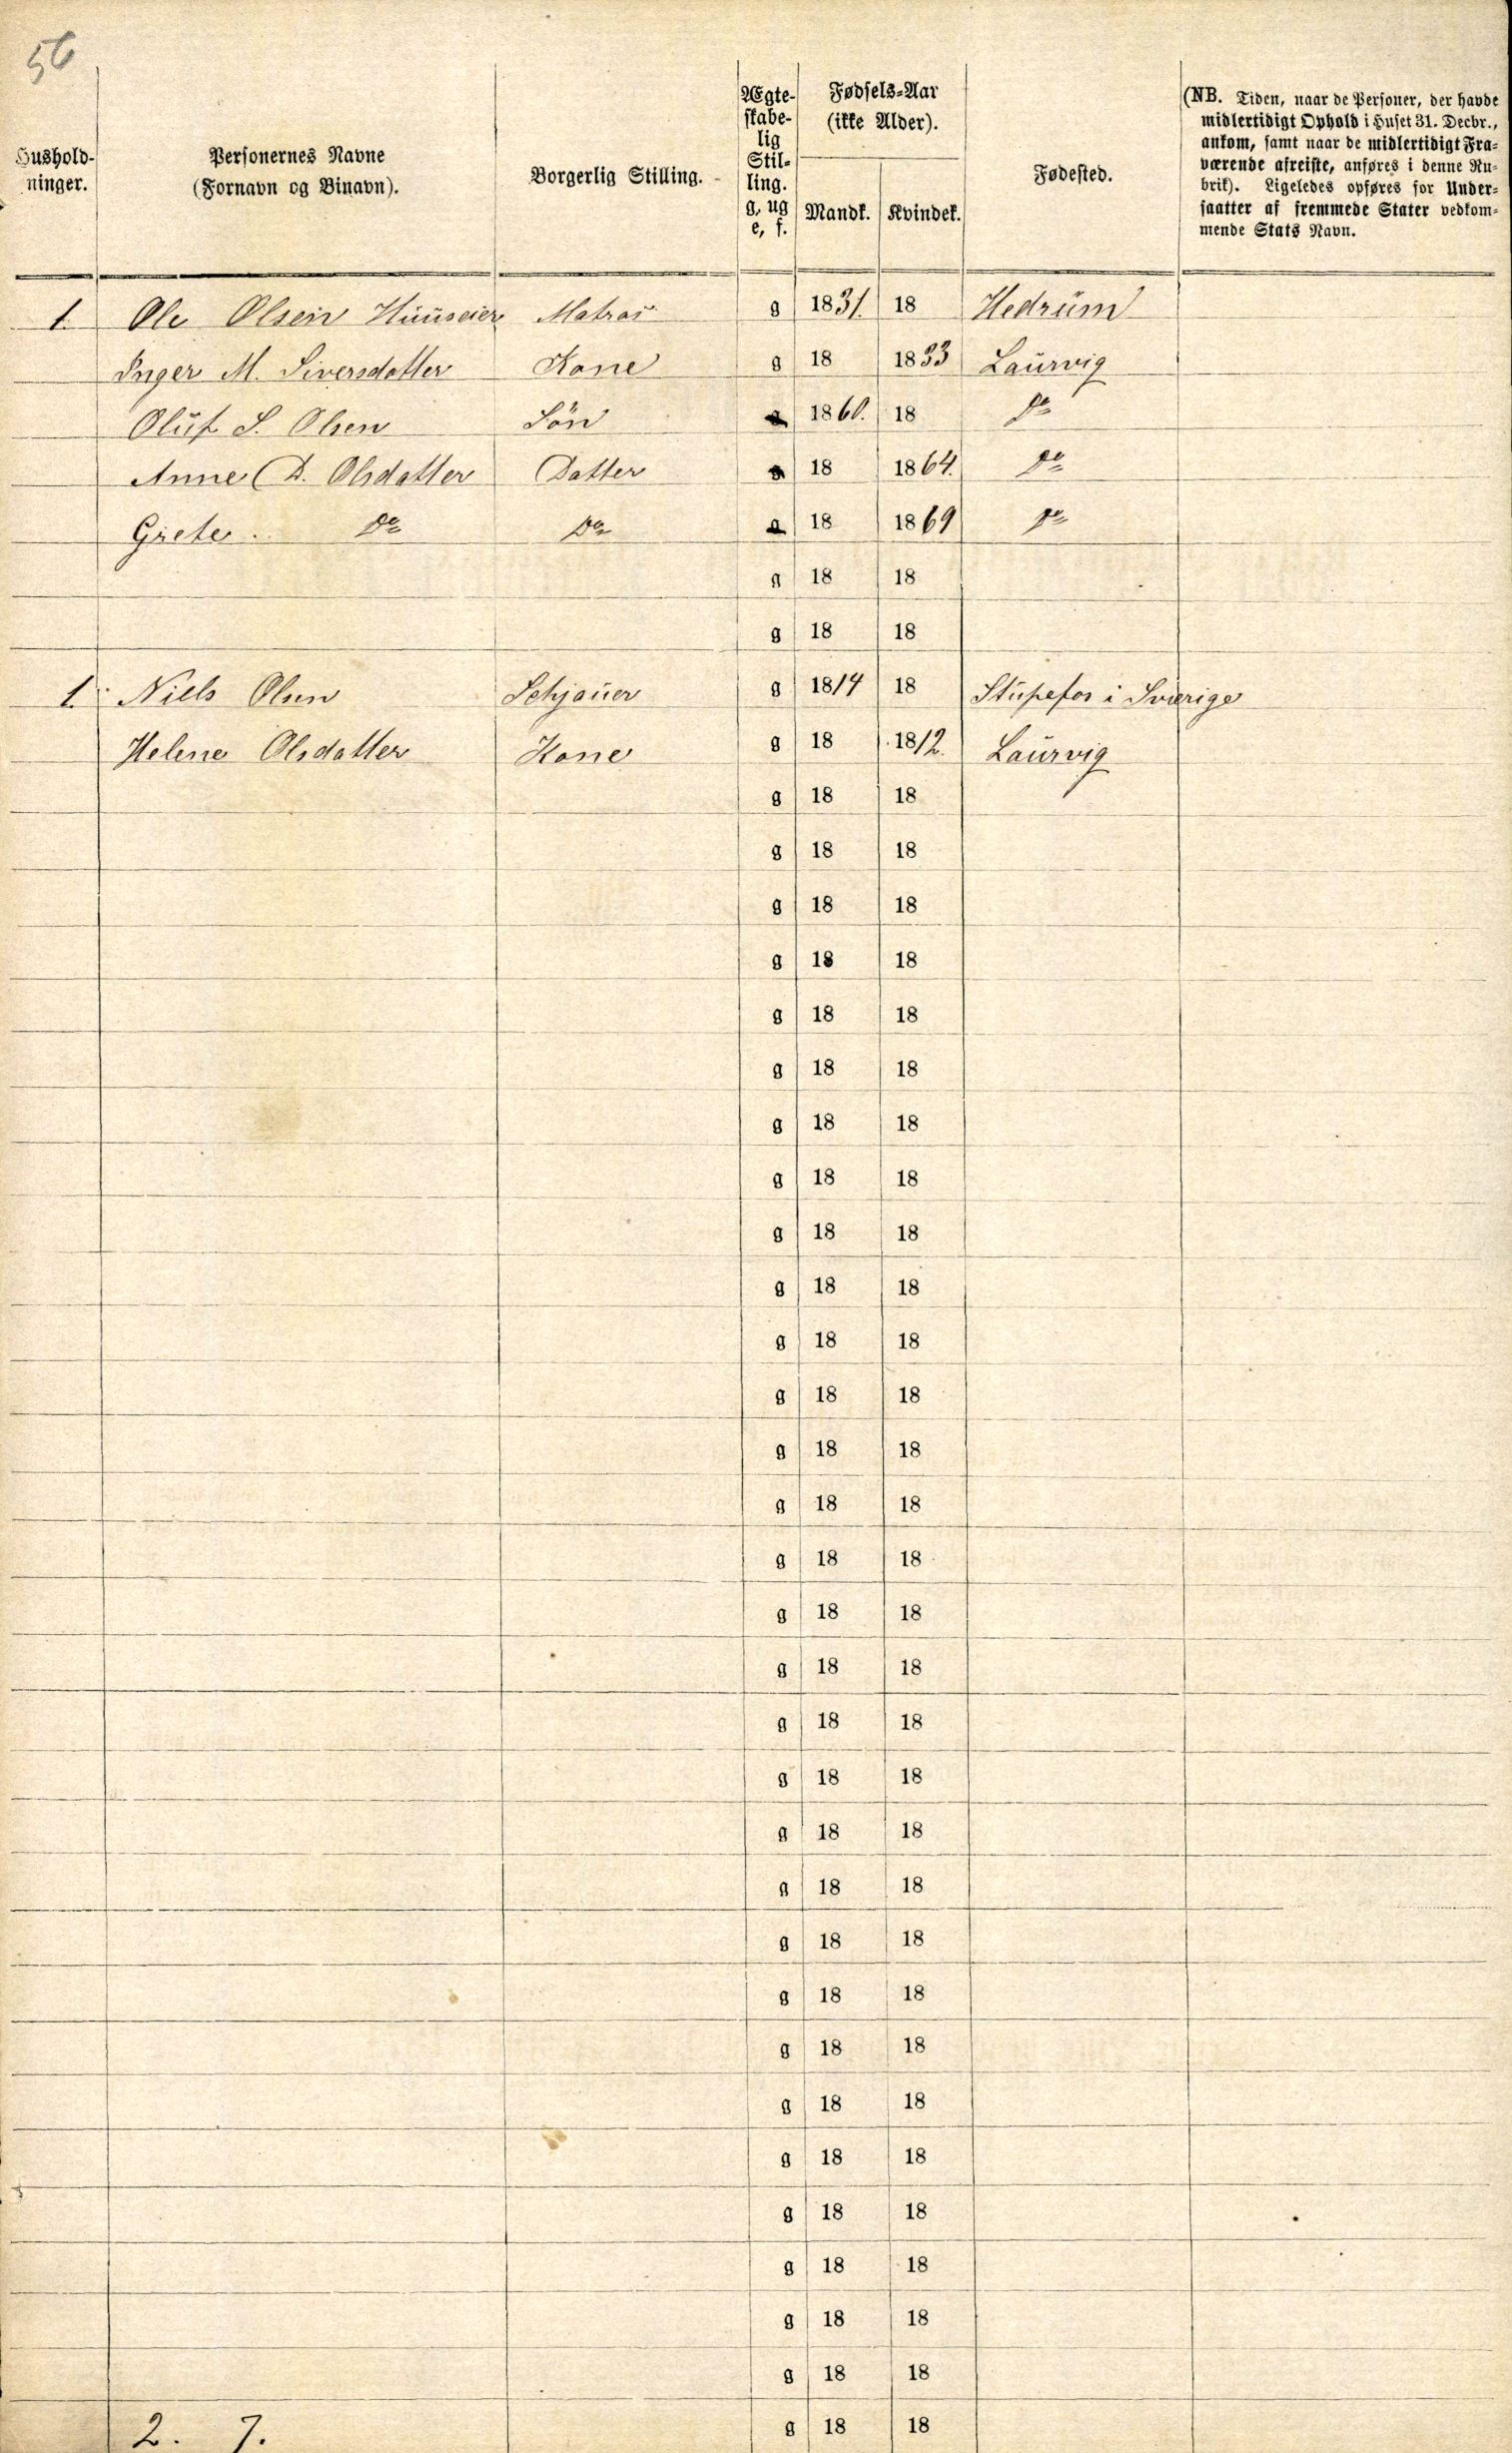 56
Hushold-
ninger.
Personernes Navne
(Fornavn og Binavn).
Borgerlig Stilling.
Ægte-
skabe-
lig
Stil-
ling.
g, ug
e, f.
Fødsels-Aar
(ikke Alder).
Mandk. Kvindek.
Fødested.
(NB. Tiden, naar de Personer, der havde
midlertidigt Ophold i Huset 31. Decbr.,
ankom, samt naar de midlertidigt Fra-
værende afreiste, anføres i denne Ru-
brik). Ligeledes opføres for Under-
saatter af fremmede Stater vedkom-
mende Stats Navn.
1. Ole Olsen Huuseier Matros g 1831. 18 Hedrum
Inger M. Siversdatter Kone g 18 1833 Laurvig
Oluf S. Olsen Sön 1860. 18 do
Anne D. Olsdatter Datter 18 1864. do
Grete. do do 18 1869 do
g 18 18
g 18 18
1. Niels Olsen Schjouer g 1814 18 i Sverige
Helene Olsdatter Kone g 18 1812. Laurvig
g 18 18
g 18 18
g 18 18
g 18 18
g 18 18
g 18 18
g 18 18
g 18 18
g 18 18
g 18 18
g 18 18
g 18 18
g 18 18
g 18 18
g 18 18
g 18 18
g 18 18
g 18 18
g 18 18
g 18 18
g 18 18
g 18 18
g 18 18
g 18 18
g 18 18
g 18 18
g 18 18
g 18 18
g 18 18
g 18 18
2. 7. g 18 18